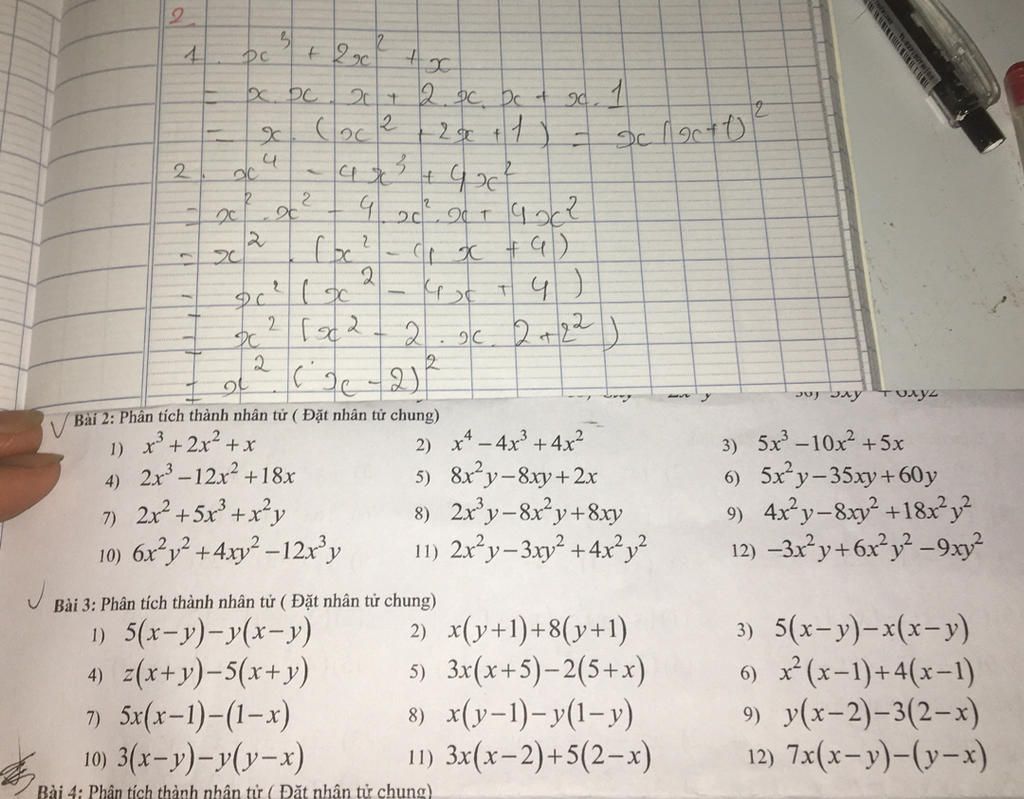 2.
1. x³ + 2x² + x
= x. x. x + 2. x. x + x. 1
= x. (x² + 2x + 1) = x(x+1)²
2. x⁴ - 4x³ + 4x²
= x². x² - 4. x². x + 4x²
= x². (x² - 4x + 4)
= x² (x² - 4x + 4)
= x² (x² - 2. x. 2 + 2²)
= x². (x - 2)²
Bài 2: Phân tích thành nhân tử ( Đặt nhân tử chung)
1) x³ + 2x² + x 2) x⁴ − 4x³ + 4x² 3) 5x³ − 10x² + 5x
4) 2x³ − 12x² + 18x 5) 8x²y − 8xy + 2x 6) 5x²y − 35xy + 60y
7) 2x² + 5x³ + x²y 8) 2x³y − 8x²y + 8xy 9) 4x²y − 8xy² + 18x²y²
10) 6x²y² + 4xy² − 12x³y 11) 2x²y − 3xy² + 4x²y² 12) −3x²y + 6x²y² − 9xy²
Bài 3: Phân tích thành nhân tử ( Đặt nhân tử chung)
1) 5(x − y) − y(x − y) 2) x(y + 1) + 8(y + 1) 3) 5(x − y) − x(x − y)
4) z(x + y) − 5(x + y) 5) 3x(x + 5) − 2(5 + x) 6) x²(x − 1) + 4(x − 1)
7) 5x(x − 1) − (1 − x) 8) x(y − 1) − y(1 − y) 9) y(x − 2) − 3(2 − x)
10) 3(x − y) − y(y − x) 11) 3x(x − 2) + 5(2 − x) 12) 7x(x − y) − (y − x)
Bài 4: Phân tích thành nhân tử ( Đặt nhân tử chung)